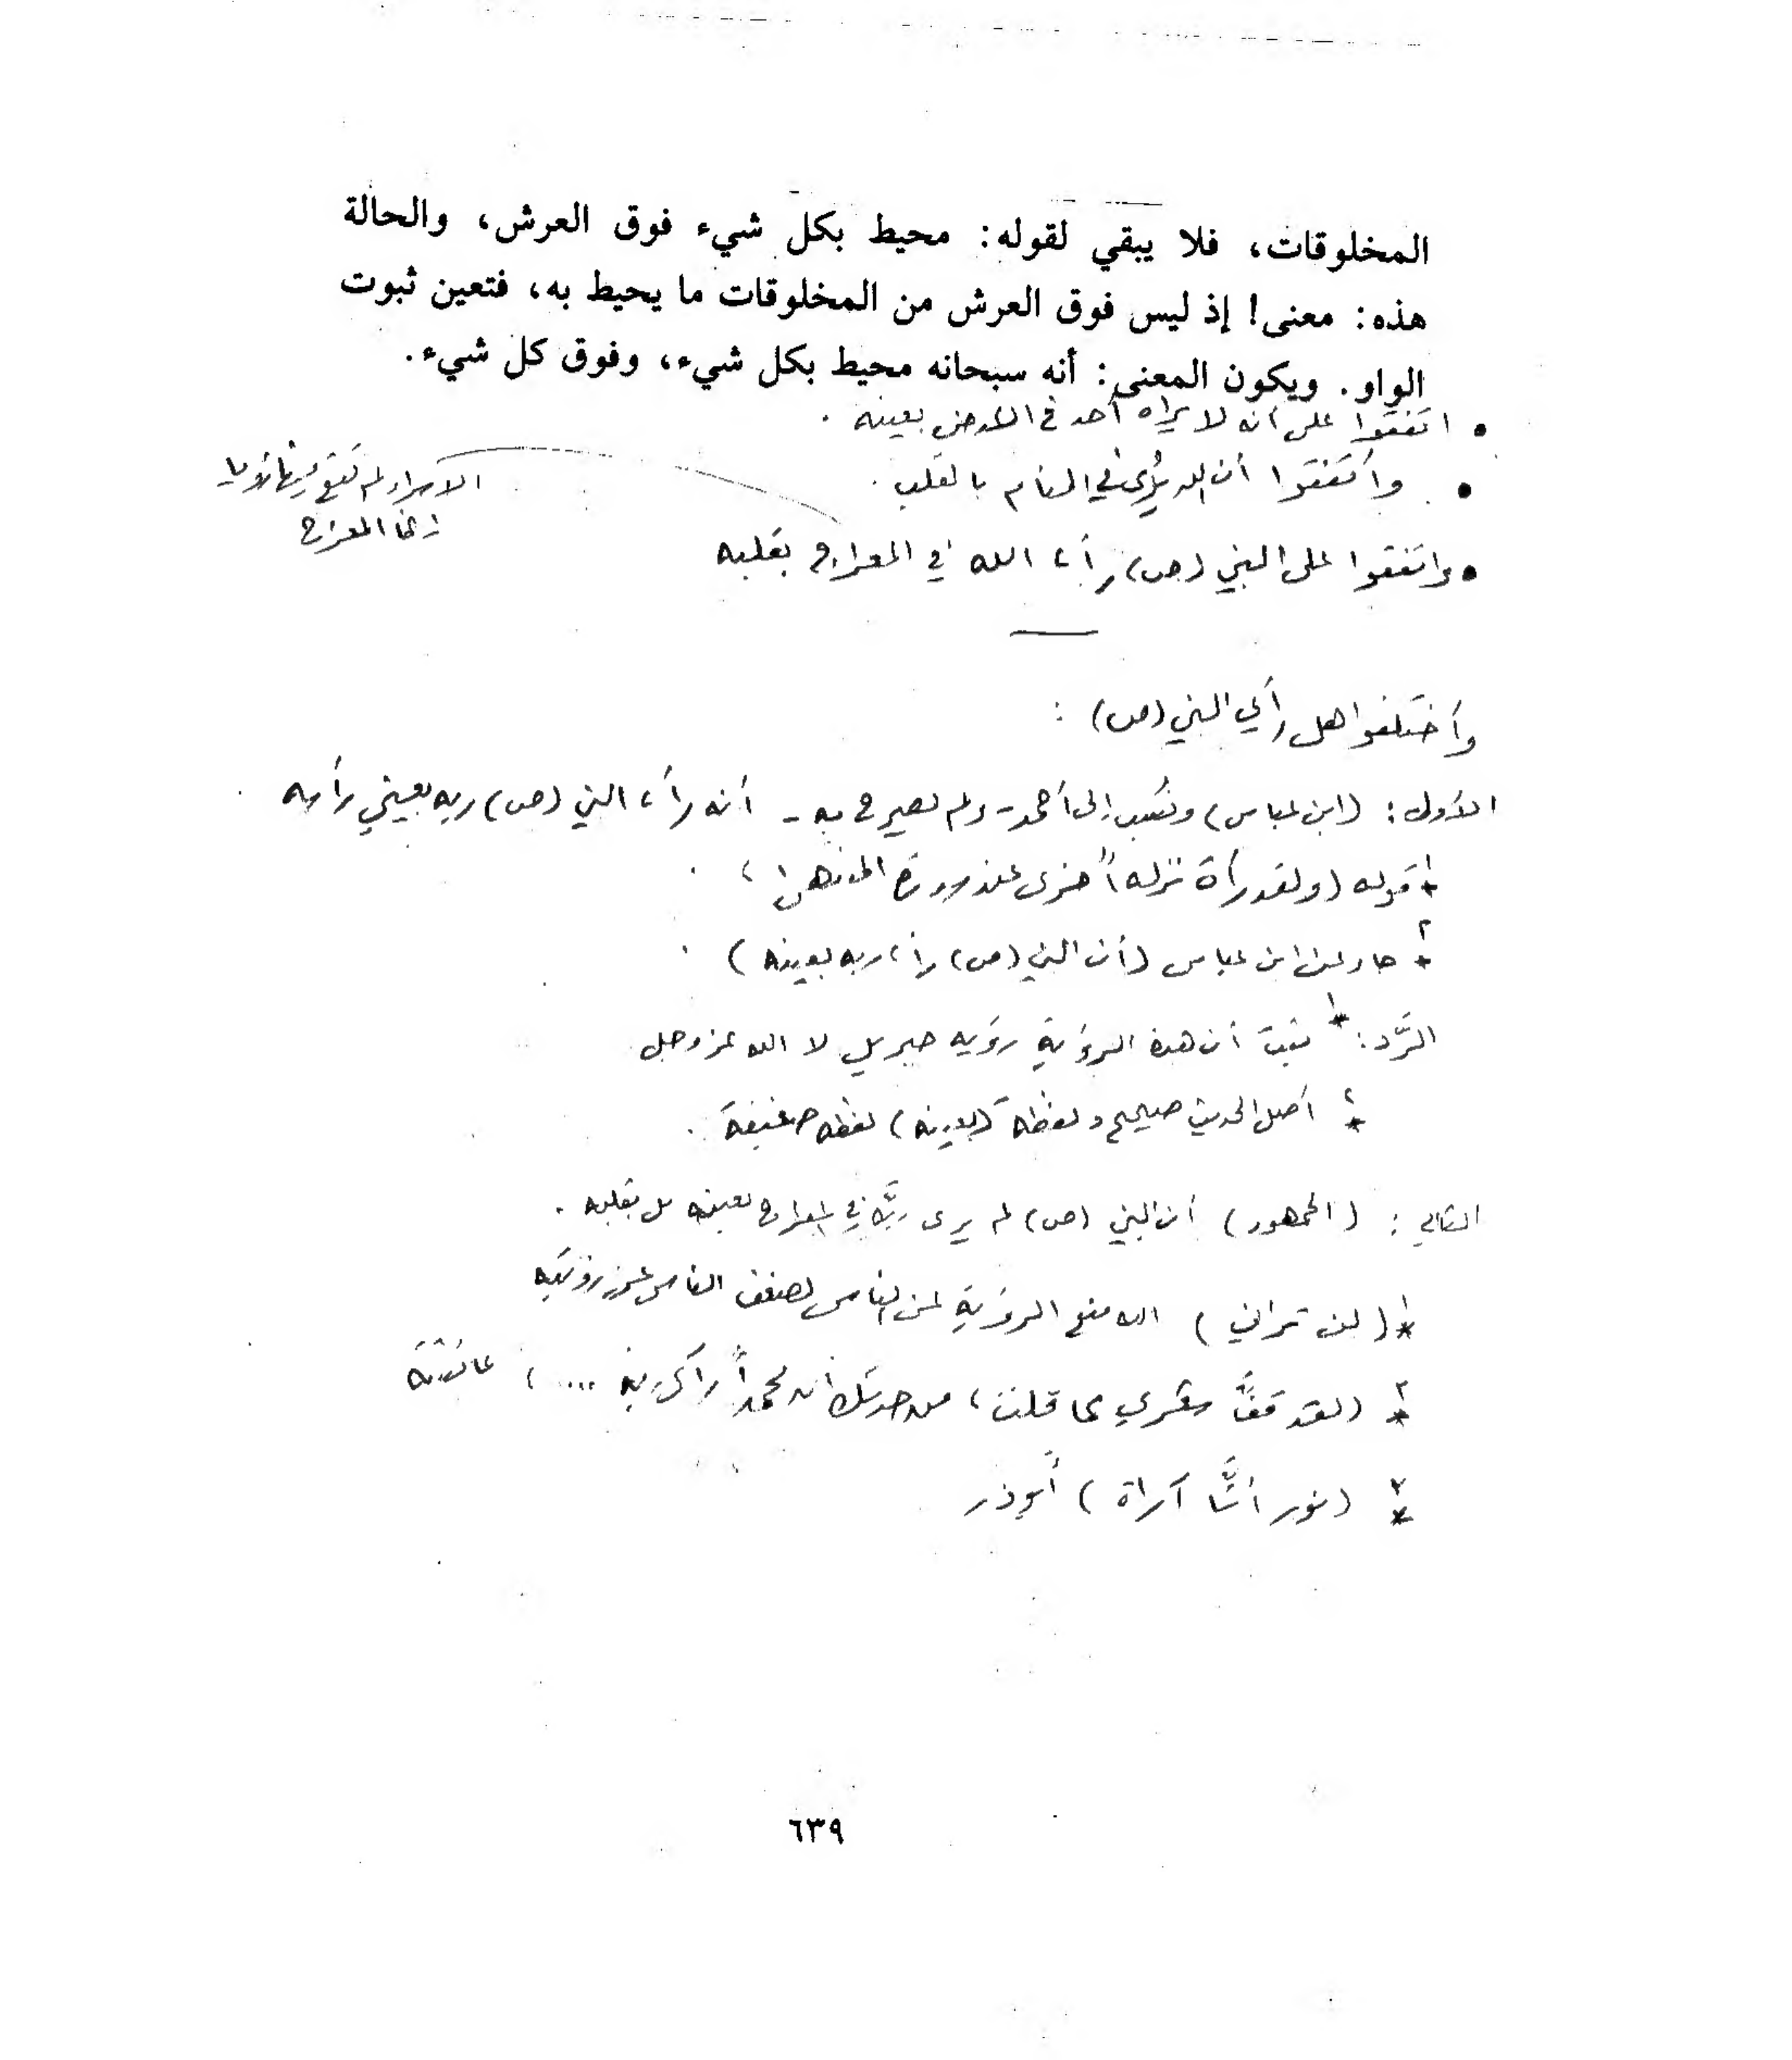 المخلوقات، فلا يبقي لقوله: محيط بكل شيء فوق العرش، والحالة
هذه: معنى! إذ ليس فوق العرش من المخلوقات ما يحيط به، فتعين ثبوت
الواو. ويكون المعنى: أنه سبحانه محيط بكل شيء، وفوق كل شيء.
• اتفقوا على أنه لا يراه أحد في الأرض بعينه.
• واتفقوا أن الله يُرى في المنام بالقلب.
الاسراء لم تقع فيها رؤيا
إنما المعراج
• واتفقوا على النبي (ص) رأى الله في المعراج بقلبه
وأختلفوا هل رأى النبي (ص) :
الأول: (ابن عباس) ونُسب إلى أحمد - ولم يصرح به - أنه رأى النبي (ص) ربه بعيني رأسه .
١* قوله (ولقد رآه نزلة أخرى عند سدرة المنتهى) .
٢* جاء عن ابن عباس (أن النبي (ص) رأى ربه بعينه) .
الرَّد: ١* ثبت أن هذه الرؤية رؤيه جبريل لا الله عز وجل
٢* أصل الحديث صحيح ولفظة (بعينه) لفظه ضعيفة .
الثاني : (الجمهور) أن النبي (ص) لم يرى ربَّه في المعراج بعينه بل بقلبه .
١* (لن تراني) الله منع الرؤية عن الناس لضعف الناس عن رؤيته
٢* (لقد قفَّ شعري مما قلت، من حدثك أن محمداً رأى ربه ....) عائشة
٣* (نور أنَّا أراه) أبو ذر
٦٣٩